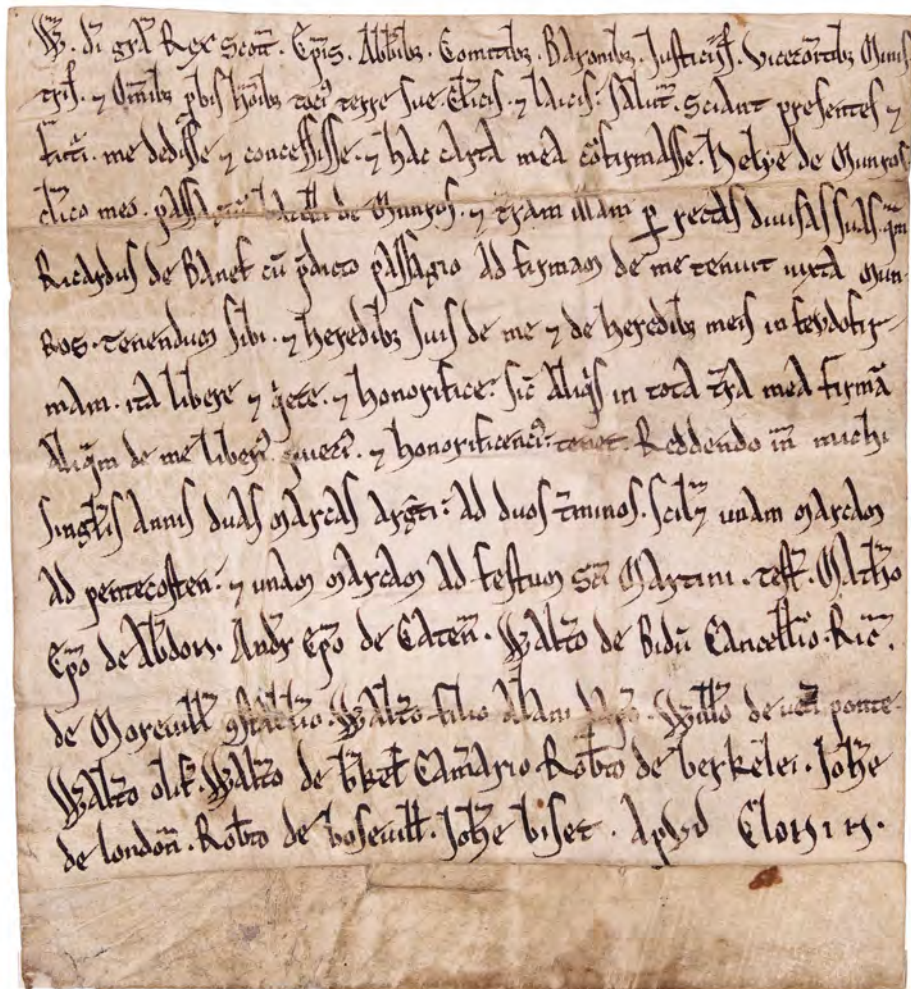 W. di gra Rex Scott. Epis. Abbibz. Comitibz. Baronibz. Justicijs. Vicecomitibz Minis
tris. ⁊ Omibz pbis hoibz toci terre sue. Clicis. ⁊ laicis: salut̃. Sciant presentes ⁊
futuri. me dedisse ⁊ concessisse. ⁊ hac carta mea cõfirmasse. Helye de Munros
clico meo. passagiũ batelli de Munros. ⁊ tram illam p rectas divisas suas. qm
Ricardus de Banef cũ pdicto passagio ad firmam de me tenuit iuxta Mun
ros. Tenendum sibi. ⁊ heredibz suis de me ⁊ de heredibz meis in feudofir
mam. ita libere ⁊ qete. ⁊ honorifice. sic aliqis in tota tra mea firmã
aliqam de me liberi. queci. ⁊ honorificenci: tenet. Reddendo in michi
singlis annis duas marcas argti: ad duos tminos. scilȝ unam marcam
ad pentecosten. ⁊ unam marcam ad festum Sci Martini. Test. Matho
Epo de Abdon. Andr Epo de Caten. Walto de Bidũ Cancellrio. Ric.
de Morevill 9stablrio. Walto filio Alani Dapo. Willo de veti ponte.
Walto olif. Walto de bkel Camario. Robto de berkelei. Johe
de londoñ. Robto de bosevill. Johe biset. Apud Clonin.